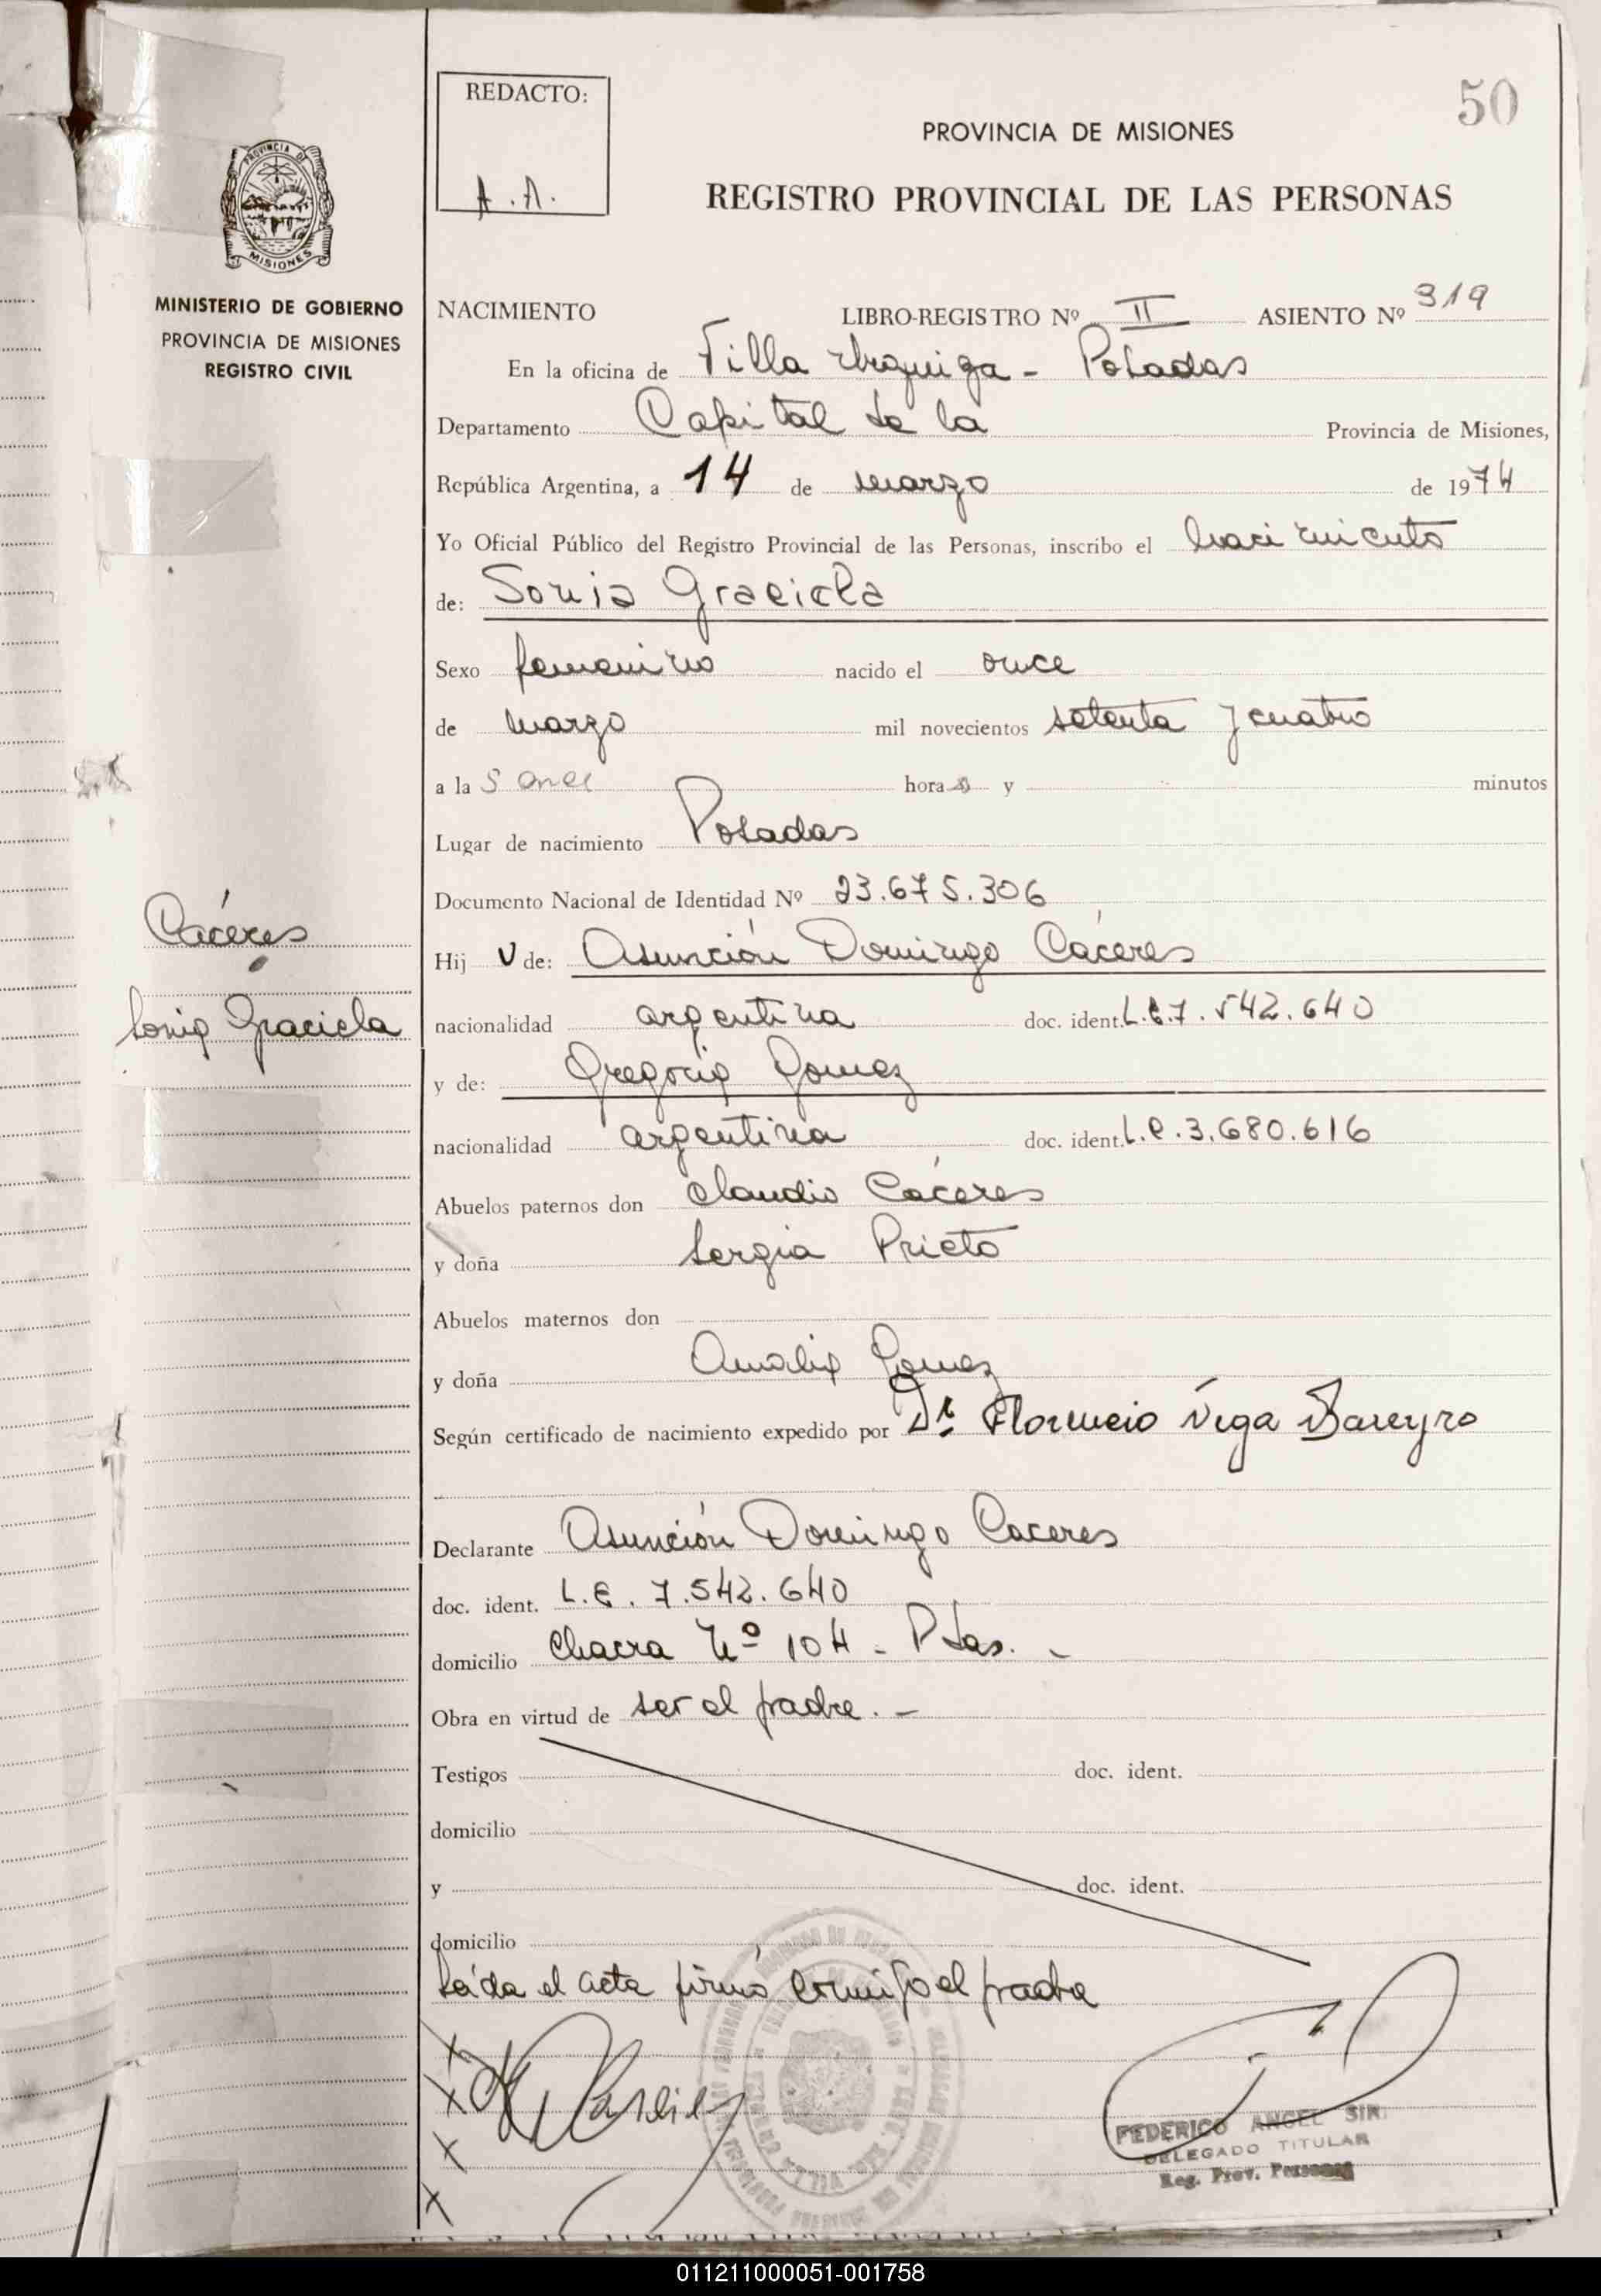 50
REDACTO:
A.A.
PROVINCIA DE MISIONES
REGISTRO PROVINCIAL DE LAS PERSONAS
PROVINCIA DE
MISIONES
MINISTERIO DE GOBIERNO
PROVINCIA DE MISIONES
REGISTRO CIVIL
NACIMIENTO LIBRO-REGISTRO Nº II ASIENTO Nº 319
En la oficina de Villa Urquiza - Posadas
Departamento Capital de la Provincia de Misiones,
República Argentina, a 14 de marzo de 1974
Yo Oficial Público del Registro Provincial de las Personas, inscribo el nacimiento
de: Sonia Graciela
Sexo femenino nacido el once
de marzo mil novecientos setenta y cuatro
a la s once hora s y minutos
Lugar de nacimiento Posadas
Documento Nacional de Identidad Nº 23.675.306
Cáceres
Sonia Graciela
Hij de: Asunción Domingo Cáceres
nacionalidad argentina doc. ident. L.E.7.542.640
y de: Gregoria Gomez
nacionalidad argentina doc. ident. L.C.3.680.616
Abuelos paternos don Claudio Cáceres
y doña Sergia Prieto
Abuelos maternos don
y doña Amalia Gomez
Según certificado de nacimiento expedido por Dr. Florencio Vega
Declarante Asunción Domingo Caceres
doc. ident. L.E. 7.542.640
domicilio Chacra Nº 104 - Pdas. -
Obra en virtud de ser el padre. -
Testigos doc. ident.
domicilio
y doc. ident.
domicilio
Leída el acta firmó conmigo el padre
FEDERICO ANGEL SIRI
DELEGADO TITULAR
Reg. Prov. Personas
011211000051-001758